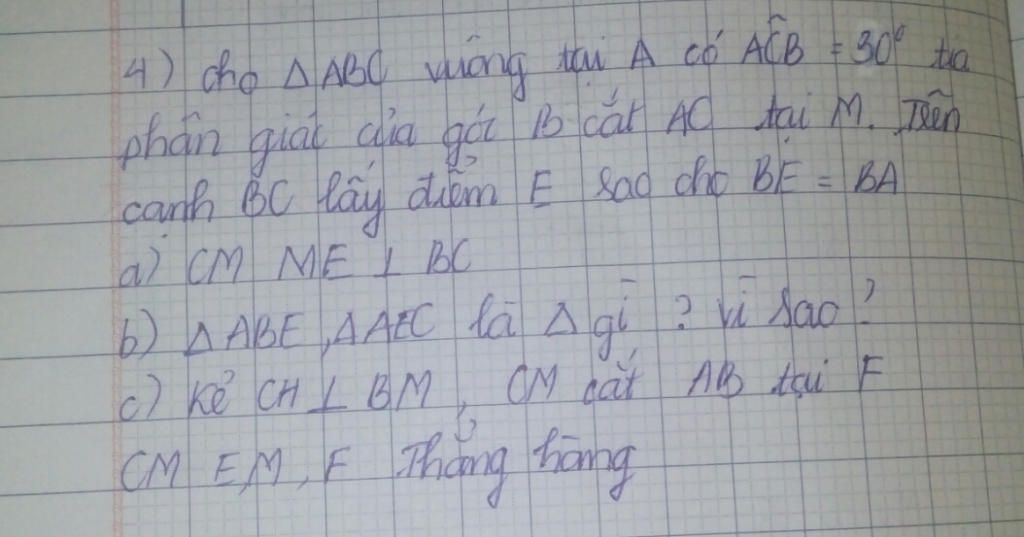 4) cho ∆ ABC vuông tại A có ACB̂ = 30° tia
phân giác của góc B cắt AC tại M. Trên
cạnh BC lấy điểm E sao cho BE = BA
a) CM ME ⊥ BC
b) ∆ ABE, ∆ AEC là ∆ gì ? vì sao ?
c) Kẻ CH ⊥ BM, CM cắt AB tại F
CM E, M, F Thẳng hàng